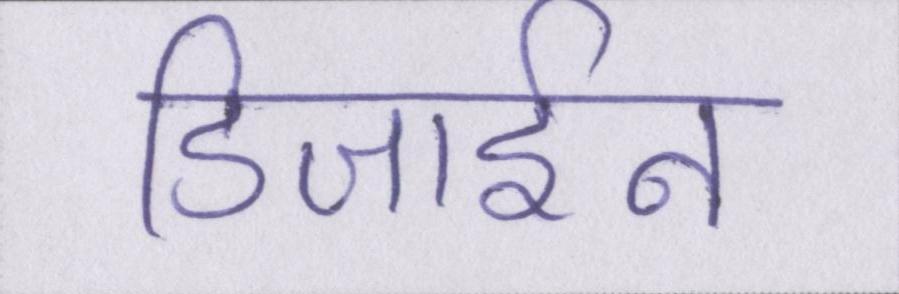 डिजाईन